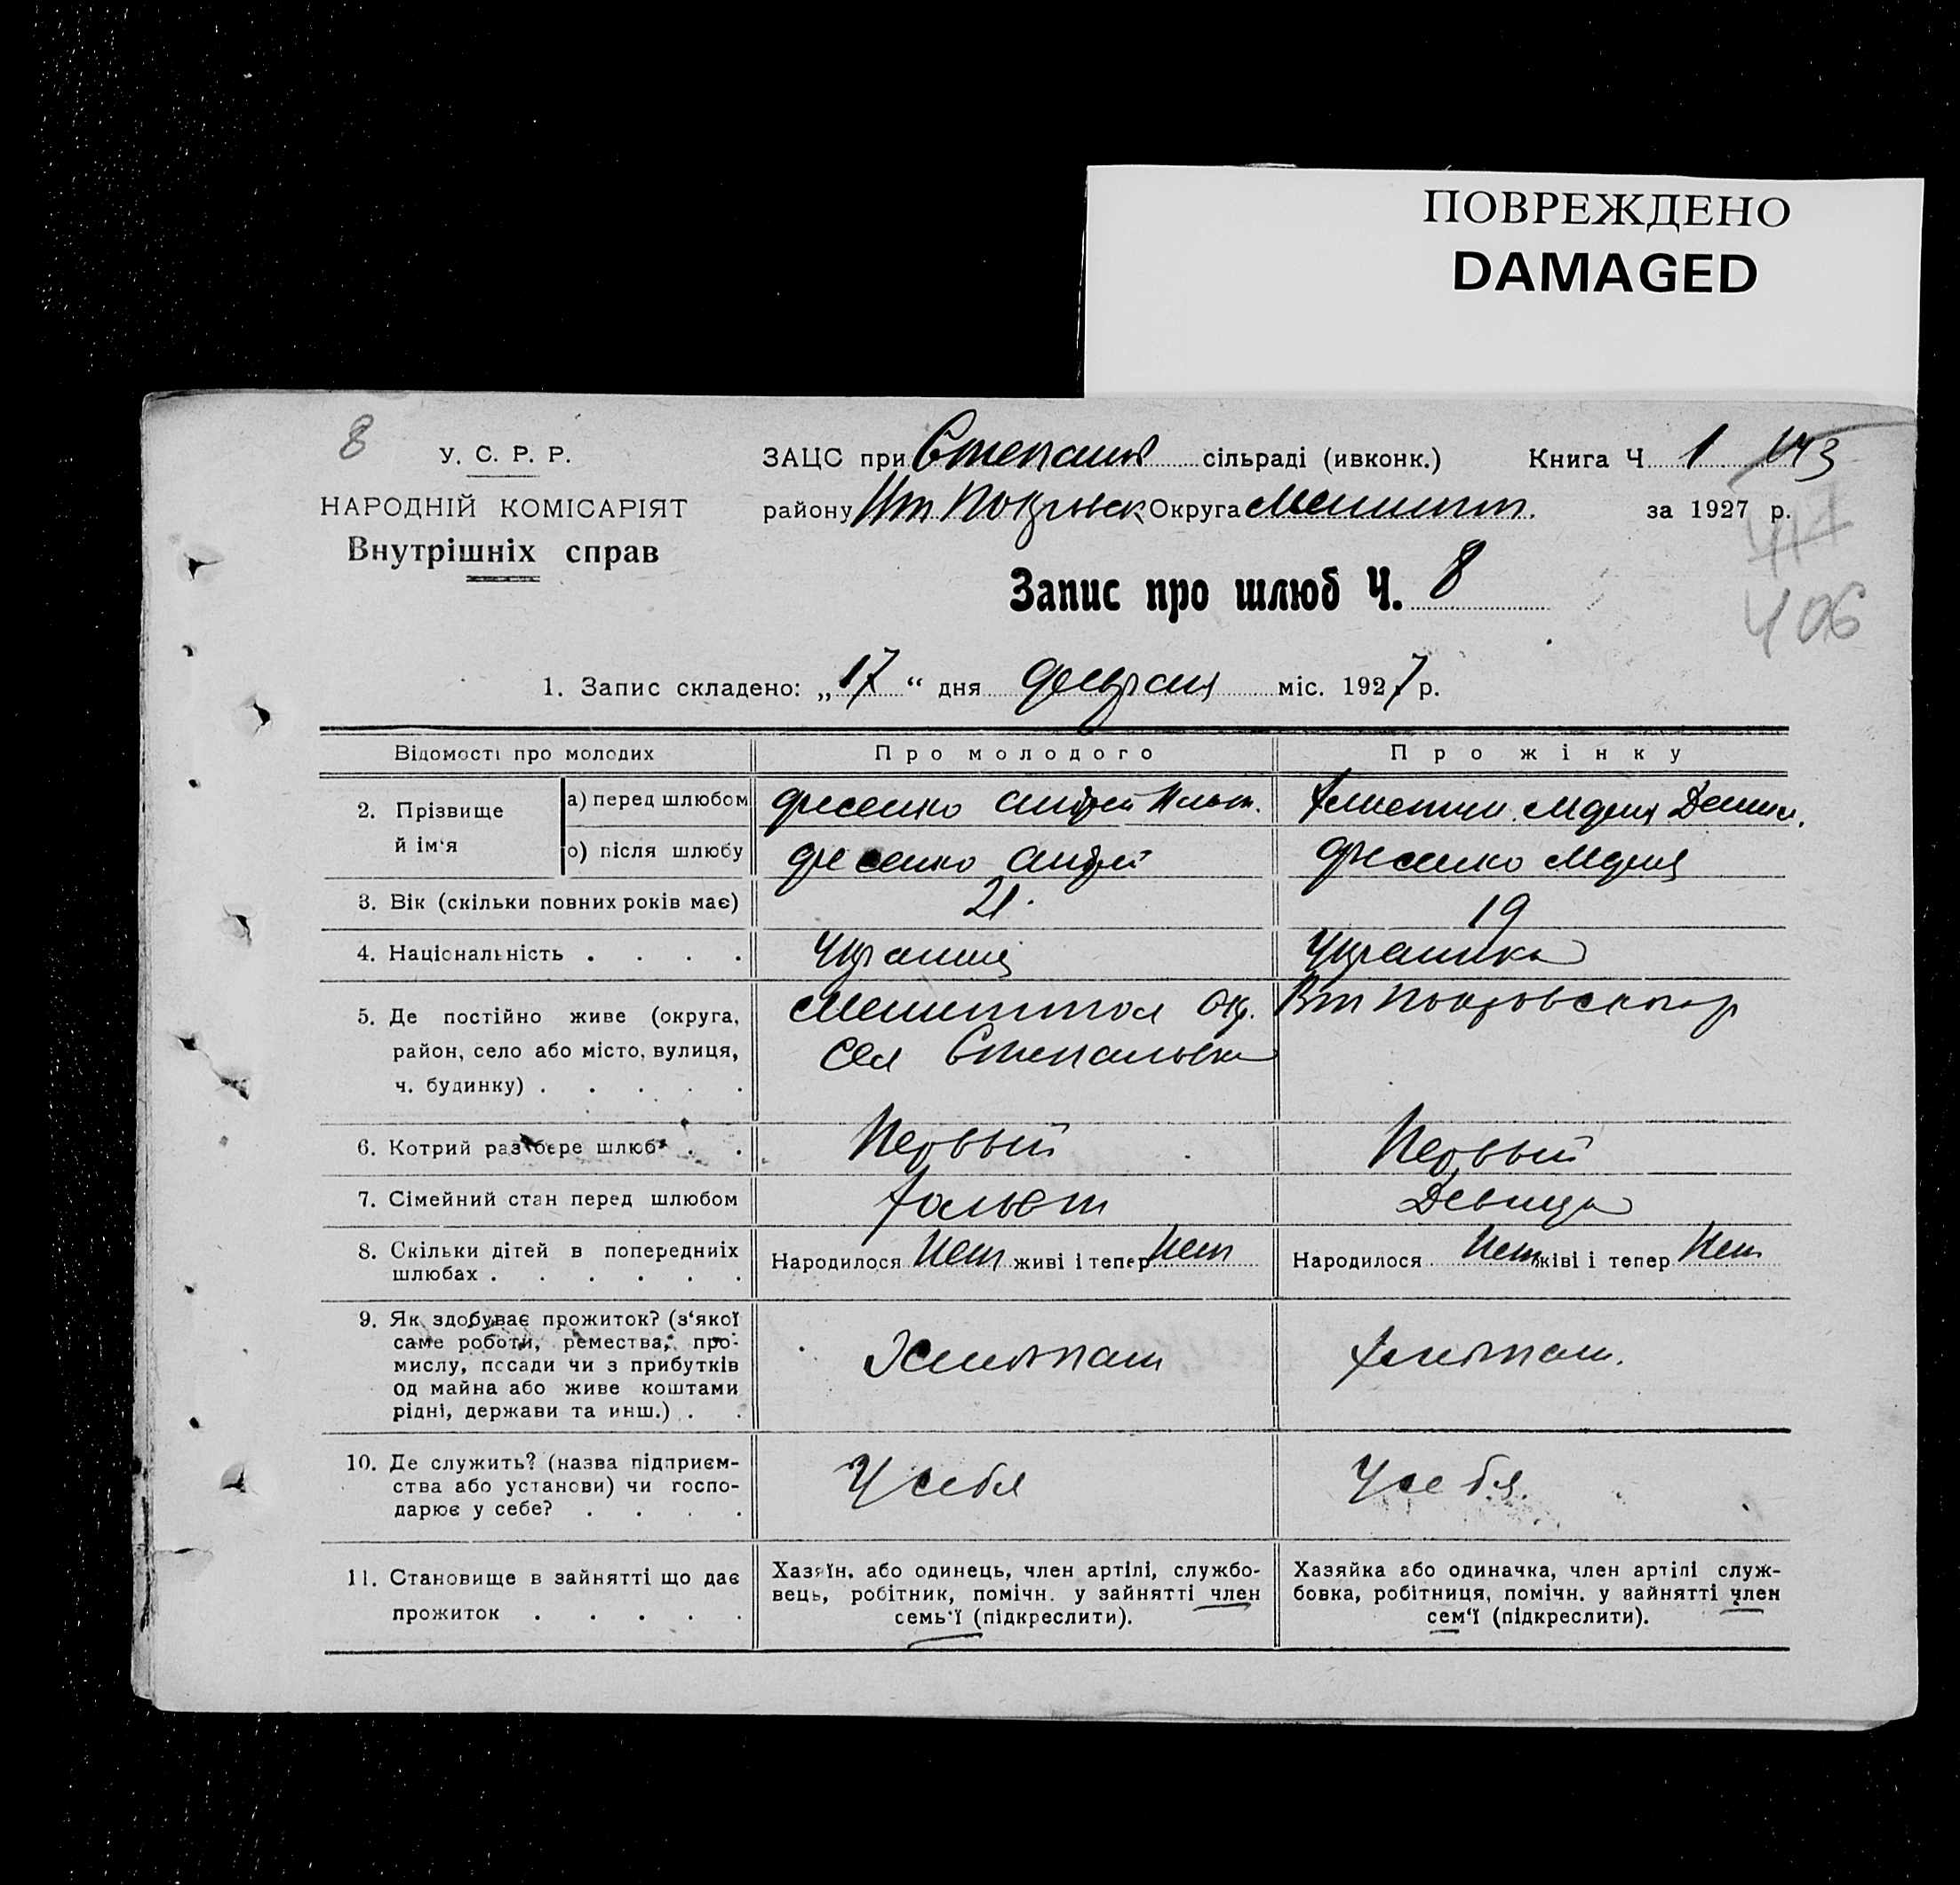 ПОВРЕЖДЕНО
DAMAGED
8
У. С. Р. Р.
НАРОДНІЙ КОМІСАРІЯТ
Внутрішніх справ
ЗАЦС при Степанов сільраді (ивконк.) Книга Ч. 1 143
району Нт Покровск Округа Мелитоп. за 1927 р.
447
406
Запис про шлюб Ч. 8
1. Запис складено: „17“ дня февраля міс. 1927 р.
Відомості про молодих Про молодого Про жінку
2. Прізвище й ім‘я
а) перед шлюбом Фесенко Андрей Мария
о) після шлюбу Фесенко Андрей Фесенко Мария
3. Вік (скільки повних років має) 21. 19
4. Національність . . . . Украинец Украинка
5. Де постійно живе (округа, район, село або місто, вулиця, ч. будинку) . . . . .
Мелитопол Окр.
Сел Степановка
6. Котрий раз бере шлюб . . Первый Первый
7. Сімейний стан перед шлюбом Холост Девица
8. Скільки дітей в попередниіх шлюбах . . . . . .
Народилося Нет живі і тепер Нет Народилося Нет живі і тепер Нет
9. Як здобуває прожиток? (з‘якої саме роботи, ремества, про-
мислу, посади чи з прибутків
од майна або живе коштами
рідні, держави та инш.) . .
Хлебопаш Хлебопаш.
10. Де служить? (назва підприєм-
ства або установи) чи госпо-
дарює у себе? . . . .
У себя У себя.
11. Становище в зайнятті що дає
прожиток . . . . .
Хазяїн, або одинець, член артілі, службо-
вець, робітник, помічн. у зайнятті член
семь‘ї (підкреслити).
Хазяйка або одиначка, член артілі служ-
бовка, робітниця, помічн. у зайнятті член
сем‘ї (підкреслити).